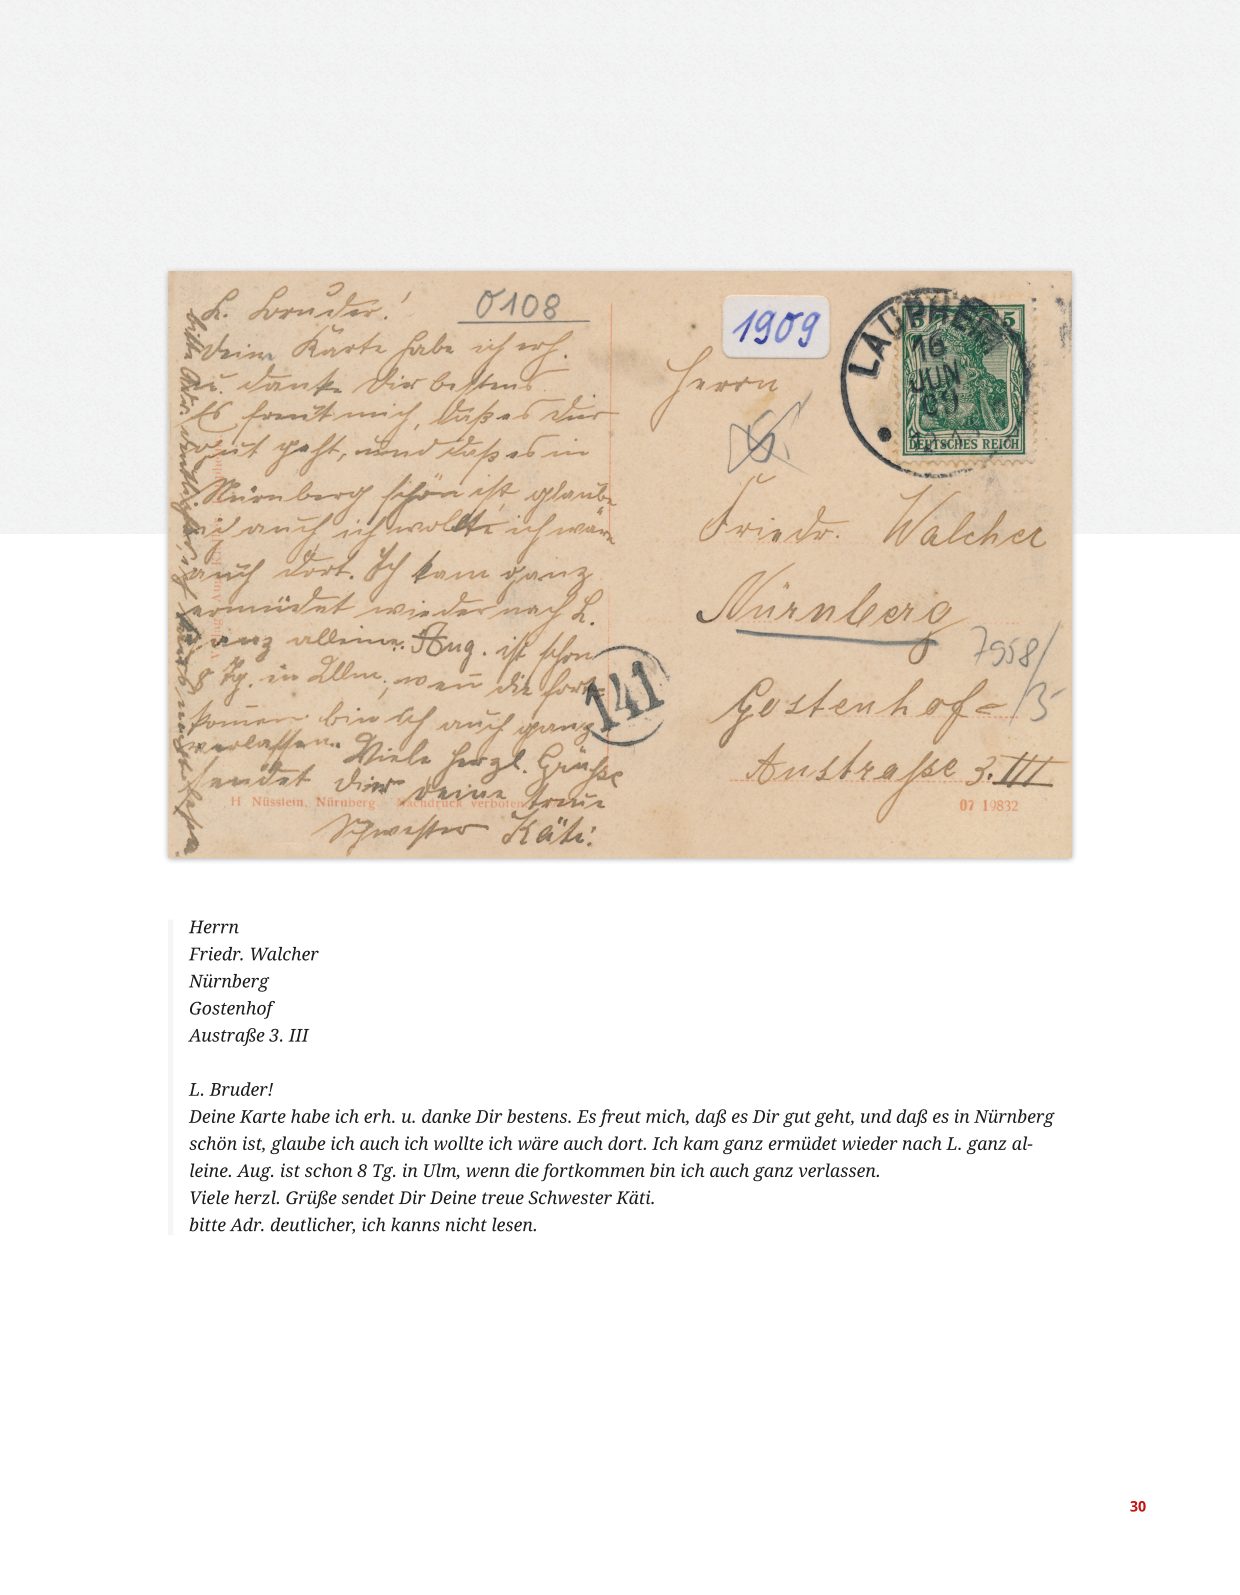 L. Bruder!
Deine Karte habe ich erh.
u. danke Dir bestens.
Es freut mich, daß es Dir
gut geht, und daß es in
Nürnberg schön ist, glaube
ich auch ich wollte ich wäre
auch dort. Ich kam ganz
ermüdet wieder nach L.
ganz alleine. Aug. ist schon
8 Tg. in Ulm, wen̄ die fort-
kom̄en bin ich auch ganz
verlassen. Viele herzl. Grüße
sendet Dir Deine treue
Schwester Käti.
bitte Adr. deutlicher, ich kanns nicht lesen.
0108
1909
LAUPHEIM
16
JUN
09
5 5
DEUTSCHES REICH
Herrn
Friedr. Walcher
Nürnberg
7958/
Gostenhof=
/3-
Austraße 3. III
141
H Nüsslein, Nürnberg Nachdruck verboten
07 19832
Herrn
Friedr. Walcher
Nürnberg
Gostenhof
Austraße 3. III
L. Bruder!
Deine Karte habe ich erh. u. danke Dir bestens. Es freut mich, daß es Dir gut geht, und daß es in Nürnberg
schön ist, glaube ich auch ich wollte ich wäre auch dort. Ich kam ganz ermüdet wieder nach L. ganz al-
leine. Aug. ist schon 8 Tg. in Ulm, wenn die fortkommen bin ich auch ganz verlassen.
Viele herzl. Grüße sendet Dir Deine treue Schwester Käti.
bitte Adr. deutlicher, ich kanns nicht lesen.
30